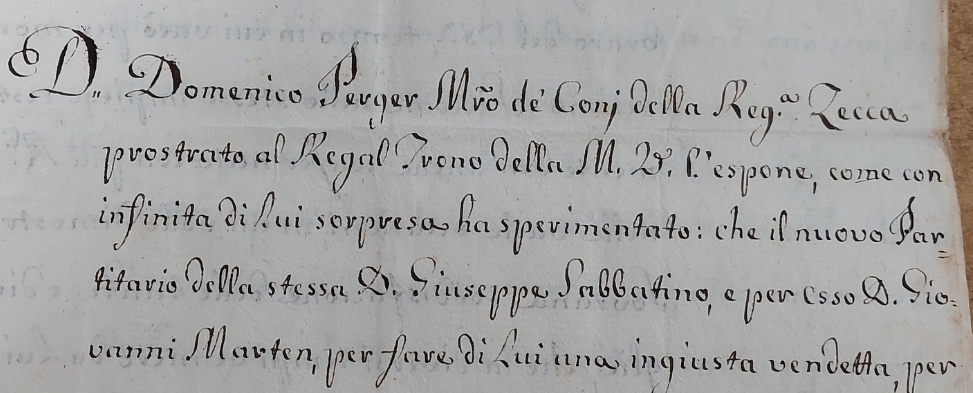 D. Domenico Perger Mrõ de' Conj della Reg.ª Zecca
prostrato al Regal Trono della M. V. l'espone, come con
infinita di Lui sorpresa ha sperimentato: che il nuovo Par=
titario della stessa D. Giuseppe Sabbatino, e per esso D. Gio=
vanni Marten, per fare di Lui una ingiusta vendetta, per